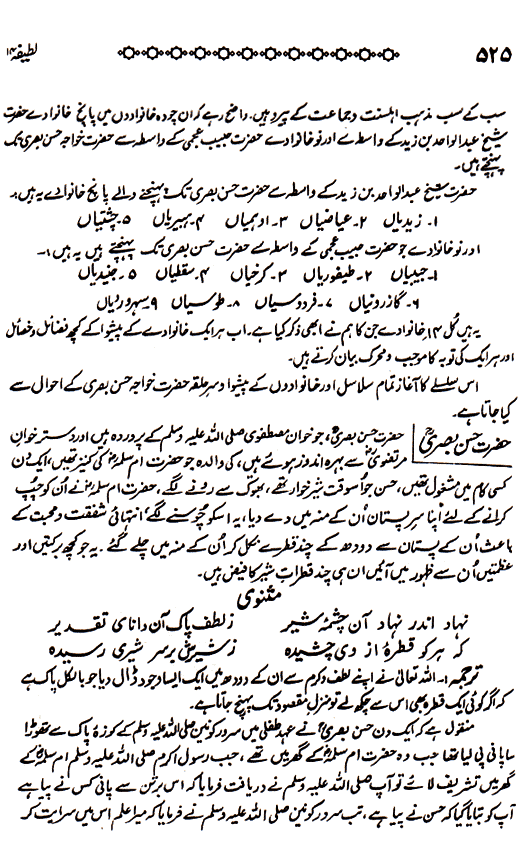 ۵۲۵
لطیفہ ۱۴
سب کے سب مذہب اہلسنت وجماعت کے پیرو ہیں۔ واضح رہے کہ ان چودہ خانوادوں میں پانچ خانوادے حضرت
شیخ عبدالواحد بن زید کے واسطے سے اور نو خانوادے حضرت حبیب عجمی کے واسطہ سے حضرت خواجہ حسن بصری تک
پہنچتے ہیں۔
حضرت شیخ عبدالواحد بن زید کے واسطے سے حضرت حسن بصری تک پہنچنے والے پانچ خانوادے یہ ہیں:
۱۔ زیدیاں ۲۔ عیاضیاں ۳۔ ادہمیاں ۴۔ ہبیریاں ۵۔ چشتیاں
اور نو خانوادے جو حضرت حبیب عجمی کے واسطے سے حضرت حسن بصری تک پہنچتے ہیں یہ ہیں:۔
۱۔ حبیبیاں ۲۔ طیفوریاں ۳۔ کرخیاں ۴۔ سقطیاں ۵۔ جنیدیاں
۶۔ گاذرونیاں ۷۔ فردوسیاں ۸۔ طوسیاں ۹۔ سہروردیاں
یہ ہیں کُل ۱۴ خانوادے جن کا ہم نے ابھی ذکر کیا ہے۔ اب ہر ایک خانوادے کے پیشوا کے کچھ فضائل وخصائل
اور ہر ایک کی توبہ کا موجب ومحرک بیان کرتے ہیں۔
اس سلسلے کا آغاز تمام سلاسل اور خانوادوں کے پیشوا و سرحلقہ حضرت خواجہ حسن بصری کے احوال سے
کیا جاتا ہے۔
حضرت حسن بصریؒ
حضرت حسن بصریؒ، جو خوان مصطفوی صلی اللہ علیہ وسلم کے پروردہ ہیں اور دستر خوان
مرتضویؓ سے بہرہ اندوز ہوئے ہیں، کی والدہ جو حضرت ام سلمہؓ کی کنیز تھیں، ایک دن
کسی کام میں مشغول تھیں، حسن جو اسوقت شیرخوار تھے، بھوک سے رونے لگے، حضرت ام سلمہؓ نے اُن کو چپ
کرانے کے لئے اپنا سرپستان اُن کے منہ میں دے دیا، یہ اسکو چوسنے لگے، انتہائی شفقت ومحبت کے
باعث اُن کے پستان سے دودھ کے چند قطرے نکل کر اُن کے منہ میں چلے گئے۔ یہ جو کچھ برکتیں اور
عظمتیں اُن سے ظہور میں آئیں ان ہی چند قطرات شیر کا فیض ہیں۔
مثنوی
نہاد اندر نہاد آن چشمۂ شیر زلطف پاک آن دانای تقدیر
کہ ہر کو قطرۂ از وی چشیدہ ز شیرینی برسر شیری رسیدہ
ترجمہ:۔ اللہ تعالیٰ نے اپنے لطف وکرم سے ان کے دودھ میں ایک ایسا وجود ڈال دیا جو بالکل پاک ہے
کہ اگر کوئی ایک قطرہ بھی اس سے چکھ لے تو منزل مقصود تک پہنچ جاتا ہے۔
منقول ہے کہ ایک دن حسن بصریؒ نے عہد طفلی میں سرور کونین صلی اللہ علیہ وسلم کے کوزہ پاک سے تھوڑا
سا پانی پی لیا تھا جب وہ حضرت ام سلمہؓ کے گھر میں تھے، جب رسول اکرم صلی اللہ علیہ وسلم ام سلمہؓ کے
گھر میں تشریف لائے تو آپ صلی اللہ علیہ وسلم نے دریافت فرمایا کہ اس برتن سے پانی کس نے پیا ہے
آپ کو بتایا گیا کہ حسن نے پیا ہے، تب سرور کونین صلی اللہ علیہ وسلم نے فرمایا کہ میرا علم اس میں سرایت کر